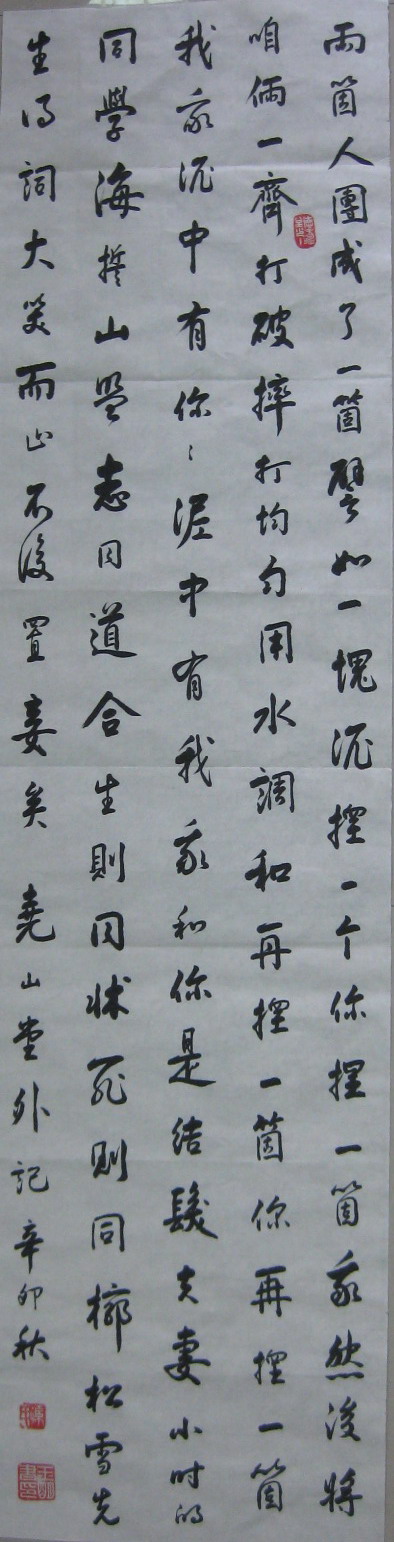 兩箇人團成了一箇譬如一塊泥捏一个你捏一箇我然後將
咱倆一齊打破摔打均勻用水調和再捏一箇你再捏一箇
我我泥中有你〻泥中有我我和你是結髮夫妻小时的
同學海誓山盟志同道合生則同牀死則同槨松雪先
生得詞大笑而止不復置妾矣堯山堂外記辛卯秋